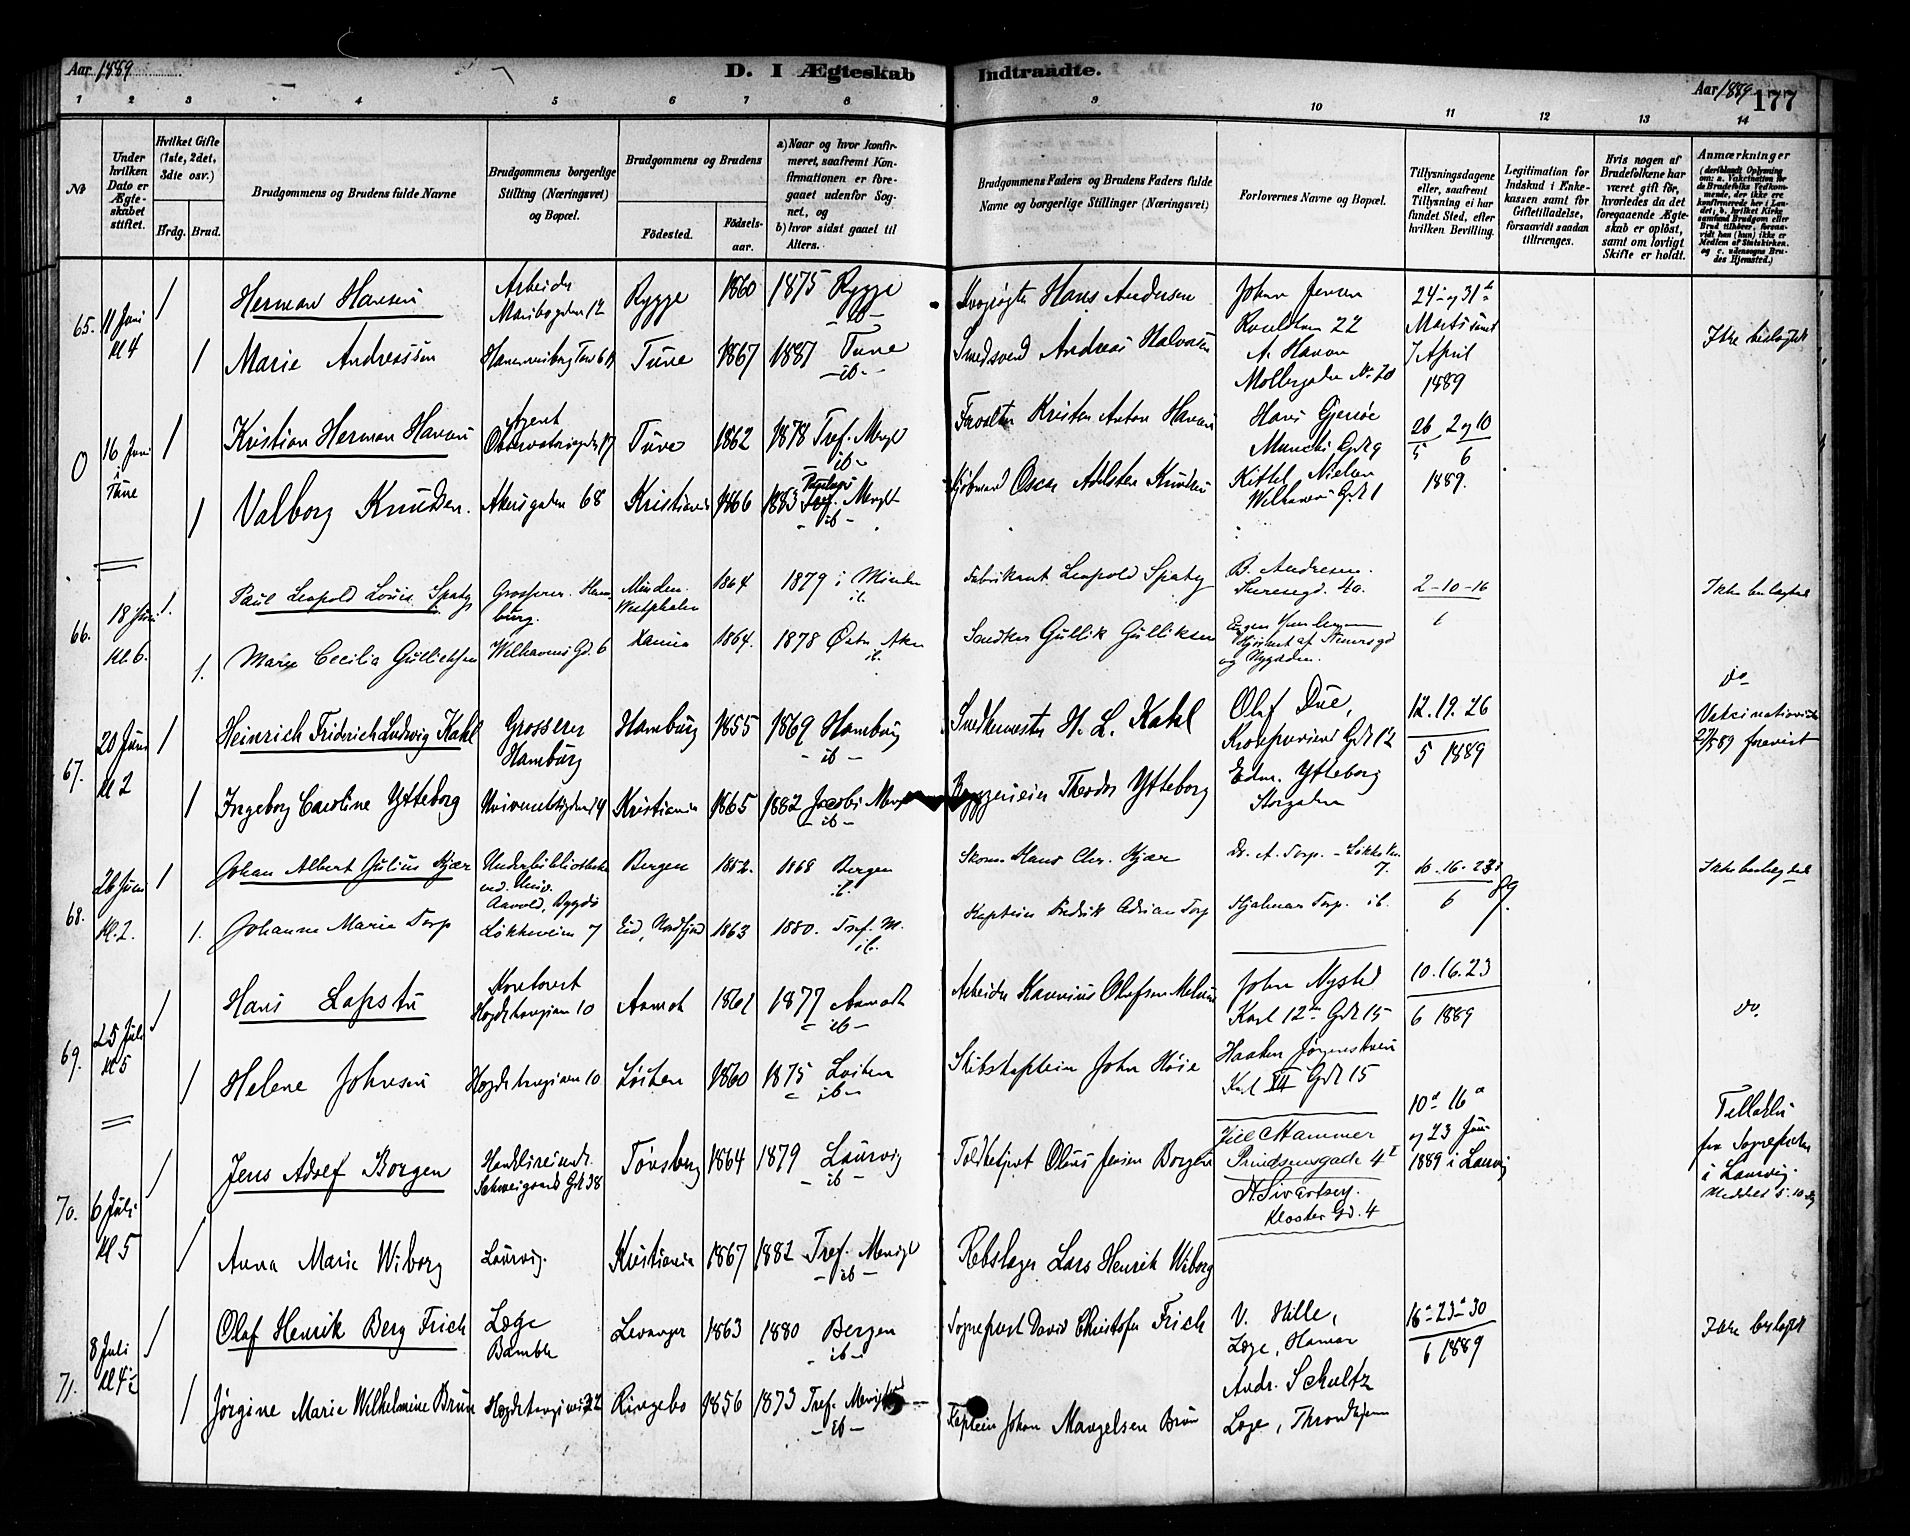 Aar 1889
D. I Ægteskab Indtraadte.
Aar 1889 177
1 2 3 4 5 6 7 8 9 10 11 12 13 14
No
Under hvilken Dato er Ægteskabet stiftet.
Hvilket Gifte (1ste, 2det, 3die osv.)
Brdg. Brud.
Brudgommens og Brudens fulde Navne
Brudgommens borgerlige Stilling (Næringsvei) og Bopæl.
Brudgommens og Brudens
Fødested.
Fødselsaar.
a) Naar og hvor konfirmeret, saafremt Konfirmationen er foregaaet udenfor Sognet, og
b) hvor sidst gaaet til Alters.
Brudgommens Faders og Brudens Faders fulde Navne og borgerlige Stillinger (Næringsvei)
Forlovernes Navne og Bopæl.
Tillysningsdagene eller, saafremt Tillysning ei har fundet Sted, efter hvilken Bevilling.
Legitimation for Indskud i Enkekassen samt for Giftetilladelse, forsaavidt saadan tiltrænges.
Hvis nogen af Brudefolkene har været gift før, hvorledes da det foregaaende Ægteskab er opløst, samt om lovligt Skifte er holdt.
Anmærkninger
65. 11 Juni Kl 4
1 Herman Hansen Arbeider Maribogaden 12 Rygge 1860 1875 Rygge - ib - Hans Andersen John Jensen 22 24de og 31te Marts samt
1 Marie Andreassen Tune 1867 1881 Tune - ib - Smedsvend Andreas Halvorsen Møllergaden No 20 7 April 1889 Ikke beslægtet
0 16 Juni i Tune
1 Kristian Herman Hansen Agent Observatoriegaden 17 Tune 1862 1878 Tref. Mengh - ib - Kristen Anton Hansen Hans Gjersøe Munchs Gd 9 26/5 2 og 10/6 1889.
1 Valborg Knudsen. Akersgaden 68 Kristiania 1866 1883 Tref. Mengh - ib - Kjøbmand Oscar Adelsten Knudsen Kittel Nielsen Welhavens Gd 1
66. 18 Juni Kl 6.
1. Paul Leopold Louis Spatz Grosserer. Hamburg. Minden. Westphalen 1864 1879 i Minden ib. Fabrikant Leopold Spatz B. Andresen. 4a. 2-10-16/6 Ikke beslægtede
1. Marie Cecilia Gulliksen Welhavens Gd. 6 Xania 1864. 1878 Østre Aker ib. Snedker Gullik Gulliksen og Nygaden. do
67. 20 Juni Kl 2
1 Heinrich Friderich Ludwig Kahl Grosserer Hamburg Hamburg 1855 1869 Hamburg - ib - Snedkermester H. L. Kahl Oluf Due, Kronprinsens Gd 12 12.19.26/5 1889 Vakcinationsattest 27/5 89 forevist
1 Ingeborg Caroline Ytteborg Universitetsgaden Kristiania 1865 1882 Jacobs Menigh - ib - Theodor Ytteborg Edm. Ytteborg Storgaden
68. 26 Juni Kl. 2.
1 Johan Albert Julius Kjær Underbibliothekar ved Univ. Aavold, Bygdø Bergen 1852. 1868 Bergen ib. Skom. Hans Chr. Kjær Dr. A. Torp. - Løkkev. 7. 10.16.23/6 89. Ikke beslægtede
1. Johanne Marie Torp Løkkeveien 7 Eid, Nordfjord 1863 1880. Tref. M. ib. Kaptein Fredrik Adrian Torp Hjalmar Torp. ib.
69. 25 Juli Kl 5
1 Hans Lapstu Kontorist Hegdehaugsveien 10 Aamot 1861 1877 Aamodt - ib - Arbeider Olafsen John Nysted Karl 12tes Gd 15 10.16.23/6 1889 do.
1 Helene Johnsen Hegdehaugsveien 10 Løiten 1860 1875 Løiten - ib - Skibskaptein John Høie Haaken Jørgenstuen Karl XII Gd 15
70. 6 Juli Kl 5
1 Jens Adolf Borgen Handelsreisende. Schweigaards Gd 38 Tønsberg 1864 1879 Laurvig - ib - Toldbetjent Olaus Jensen Borgen Hammer Prindsensgade 4 I 10de 16de og 23 Juni 1889 i Laurvig Tillyst fra Sognepresten i Laurvig.
1 Anna Marie Wiborg Laurvig. Kristiania 1867 1882 Tref. Menigh - ib - Rebslager Lars Henrik Wiborg A. Sivertsen. Kloster Gd. 4
71. 8 Juli Kl 4½
1 Olaf Henrik Berg Frich Læge Bamble Levanger 1863 1880 Bergen - ib - Sogneprest David Christofer Frich V. Hille, Læge, Hamar 16-23-30/6 1889 Ikke beslægtet
1 Jørgine Marie Wilhelmine Bruun Hegdehaugsveien 22 Ringebo 1856 1873 Tref. Menigh - ib - Kaptein Johan Mangelsen Bruun Andr. Schultz Læge, Throndhjem